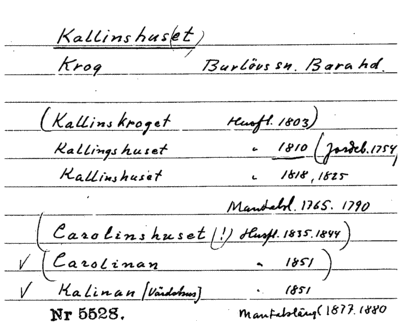 Kallinshus(et)
Krog Burlövs sn. Bara hd.
(Kallinskroget Husfl. 1803)
Kallingshuset " 1810 (Jordeb. 1754)
Kallinshuset " 1818, 1825
Mantalsl. 1765. 1790
(Carolinshuset (!) Husfl. 1835. 1844)
√ (Carolinan " 1851)
√ Kalinan [Värdshus] " 1851
Nr 5528. Mantalsläng (1877. 1880